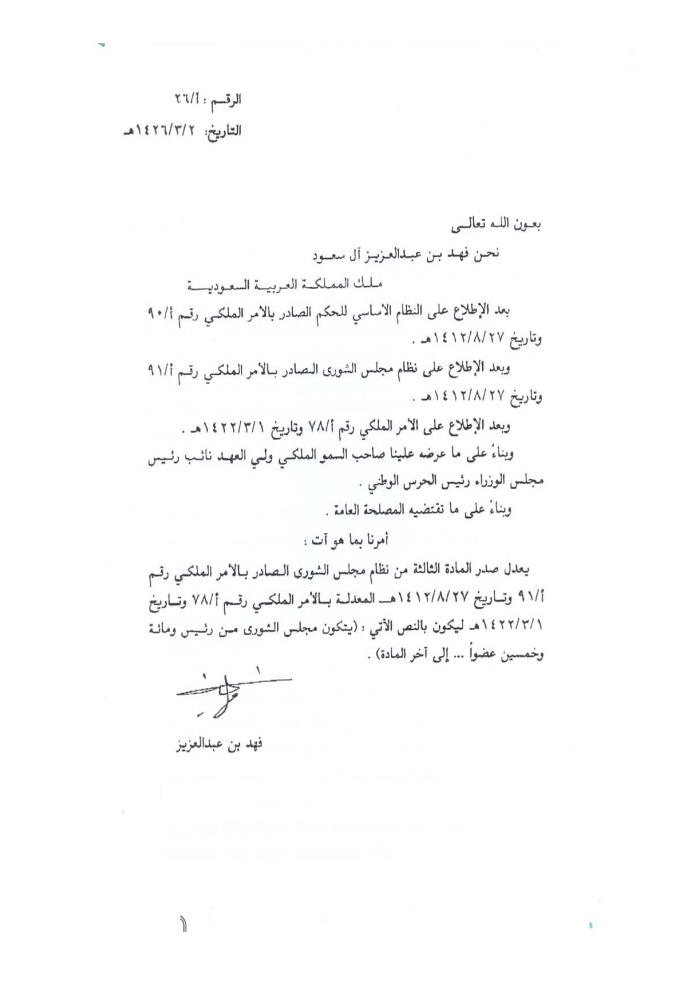 الرقم : أ/٢٦
التاريخ: ١٤٢٦/٣/٢هـ
بعون الله تعالى
نحن فهد بن عبدالعزيز آل سعود
ملك المملكة العربية السعودية
بعد الإطلاع على النظام الأساسي للحكم الصادر بالأمر الملكي رقم أ/٩٠
وتاريخ ١٤١٢/٨/٢٧هـ .
وبعد الإطلاع على نظام مجلس الشورى الصادر بالأمر الملكي رقم أ/٩١
وتاريخ ١٤١٢/٨/٢٧هـ .
وبعد الإطلاع على الأمر الملكي رقم أ/٧٨ وتاريخ ١٤٢٢/٣/١هـ .
وبناءً على ما عرضه علينا صاحب السمو الملكي ولي العهد نائب رئيس
مجلس الوزراء رئيس الحرس الوطني .
وبناءً على ما تقتضيه المصلحة العامة .
أمرنا بما هو آت :
يعدل صدر المادة الثالثة من نظام مجلس الشورى الصادر بالأمر الملكي رقم
أ/٩١ وتاريخ ١٤١٢/٨/٢٧هـ المعدلة بالأمر الملكي رقم أ/٧٨ وتاريخ
١٤٢٢/٣/١هـ ليكون بالنص الآتي : (يتكون مجلس الشورى من رئيس ومائة
وخمسين عضواً ... إلى آخر المادة) .
فهد بن عبدالعزيز